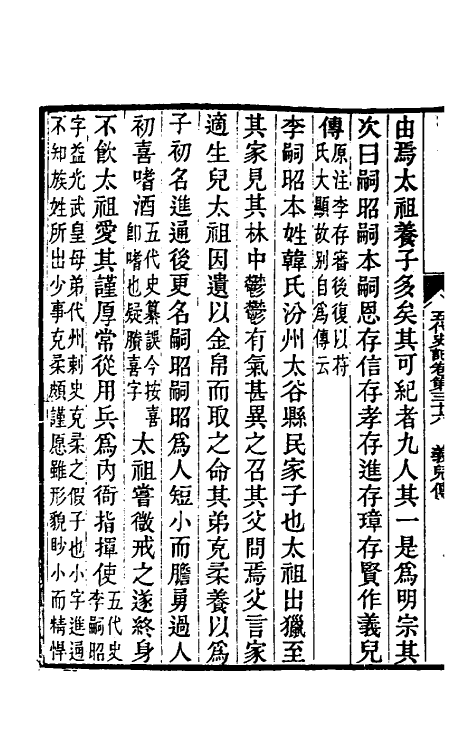 五代史記卷第三十六　義兒傳
由焉太祖養子多矣其可紀者九人其一是爲明宗其
次曰嗣昭嗣本嗣恩存信存孝存進存璋存賢作義兒
傳
原注李存審後復以符
氏大顯故别自爲傳云
李嗣昭本姓韓氏汾州太谷縣民家子也太祖出獵至
其家見其林中鬱鬱有氣甚異之召其父問焉父言家
適生兒太祖因遺以金帛而取之命其弟克柔養以爲
子初名進通後更名嗣昭爲人短小而膽勇過人
初喜嗜酒
五代史纂誤今按喜
卽嗜也疑賸喜字
太祖嘗微戒之遂終身
不飲太祖愛其謹厚常從用兵爲內衙指揮使
五代史
李嗣昭
字益光武皇母弟代州刺史克柔之假子也小字進通
不知族姓所出少事克柔頗謹愿雖形貌眇小而精悍